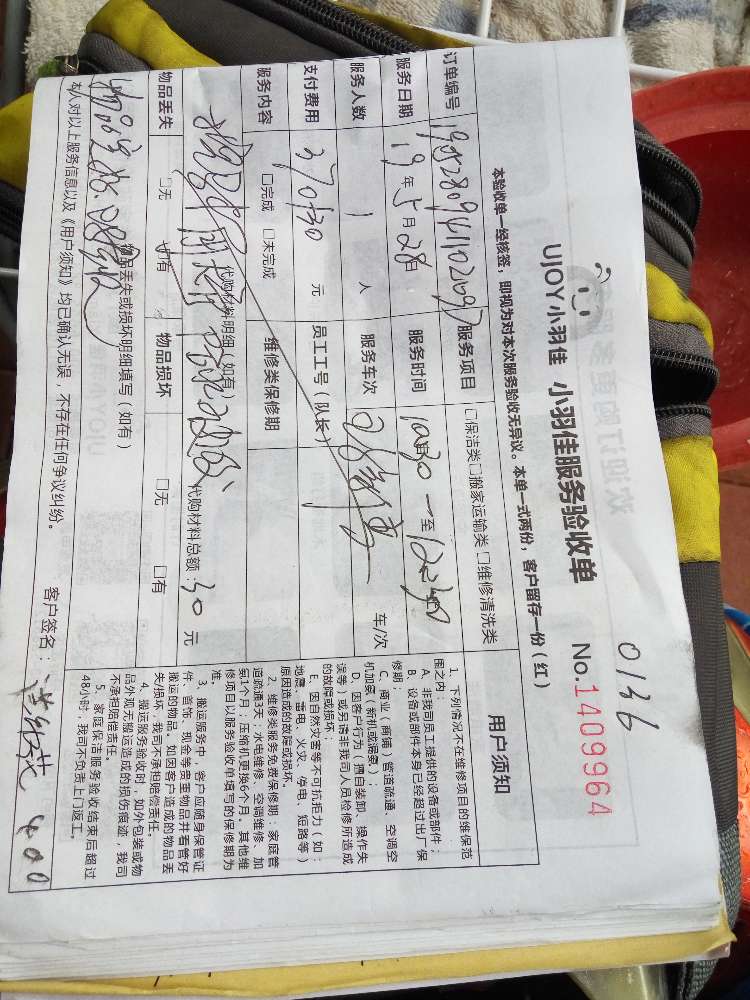 0136
UJOY小羽佳 小羽佳服务验收单 No.1409964
本验收单一经核签，即视为对本次服务验收无异议。本单一式两份，客户留存一份（红）
订单编号 服务项目 □保洁类□搬家运输类□维修清洗类
服务日期 19年5月28日 服务时间 至
服务人数 1 人 服务车次 车/次
支付费用 370+30 元 员工工号（队长）
服务内容 □完成 □未完成 维修类保修期
代购材料明细（如有） 代购材料总额：30元
物品丢失 □无 □有 物品损坏 □无 □有
物品丢失或损坏明细填写（如有）
本人对以上服务信息以及《用户须知》均已确认无误，不存在任何争议纠纷。
客户签名： 400
用户须知
1、下列情况不在维修项目的维保范
围之内：
A、非我司员工提供的设备或部件；
B、设备或部件本身已经超过出厂保
修期；
C、商业（商铺）管道疏通、空调空
机加氟（新机或漏氟）；
D、因客户行为（擅自装卸、操作失
误等）或另请非我司人员检修所造成
的故障或损坏；
E、因自然灾害等不可抗拒力（如：
地震、雷电、火灾、停电、短路等）
原因造成的故障或损坏。
2、维修类服务免费保修期：家庭管
道疏通3天；水电维修、空调维修、加
氟1个月；压缩机更换6个月。其他维
修项目以服务验收单填写的保修期为
准。
3、搬运服务中，客户应随身保管证
件、首饰、现金等贵重物品并看管好
搬运的物品，如因客户造成的物品丢
失/损坏，我司不承担赔偿责任。
4、搬运服务验收时，如外包装或物
品外观无搬运造成的损伤痕迹，我司
不承担赔偿责任。
5、家庭保洁服务验收结束后超过
48小时，我司不负责上门返工。